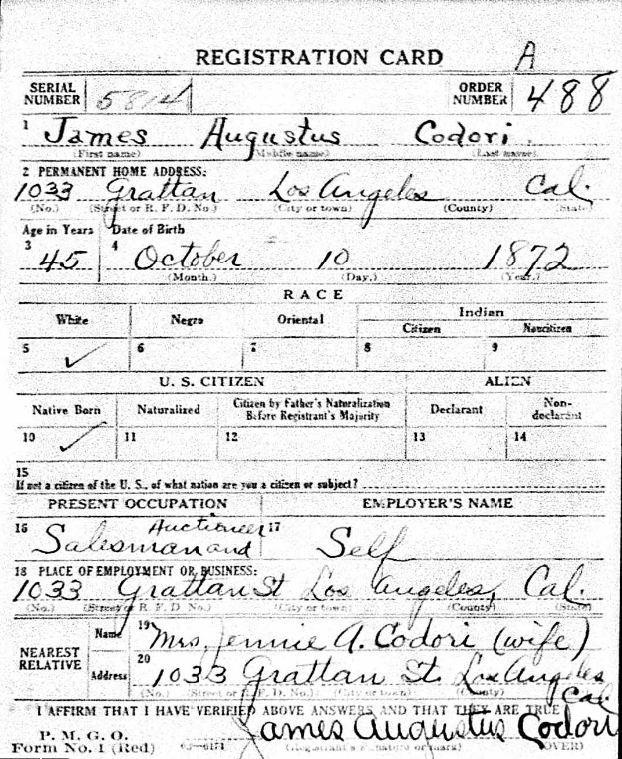 REGISTRATION CARD A
SERIAL NUMBER 5814 ORDER NUMBER 488
1 James Augustus Codori.
(First name) (Middle name) (Last name)
2 PERMANENT HOME ADDRESS:
1033 Grattan Los Angeles Cal.
(No.) (Street or R. F. D. No.) (City or town) (County) (State)
Age in Years Date of Birth
3 45 4 October 10 1872
(Month.) (Day.) (Year.)
RACE
White Negro Oriental Indian
Citizen Noncitizen
5 ✓ 6 7 8 9
U. S. CITIZEN ALIEN
Native Born Naturalized Citizen by Father's Naturalization Before Registrant's Majority Declarant Non-declarant
10 ✓ 11 12 13 14
15
If not a citizen of the U. S., of what nation are you a citizen or subject?
PRESENT OCCUPATION EMPLOYER'S NAME
16 Salesman and Auctioneer 17 Self
18 PLACE OF EMPLOYMENT OR BUSINESS:
1033 Grattan St Los Angeles, Cal.
(No.) (Street or R. F. D. No.) (City or town) (County) (State)
NEAREST RELATIVE
Name 19 Mrs. Jennie A. Codori (wife)
Address 20 1033 Grattan St. Los Angeles Cal
(No.) (Street or R. F. D. No.) (City or town) (County)
I AFFIRM THAT I HAVE VERIFIED ABOVE ANSWERS AND THAT THEY ARE TRUE
P. M. G. O.
Form No. 1 (Red) 03-6171 James Augustus Codori
(Registrant's signature or mark) (OVER)